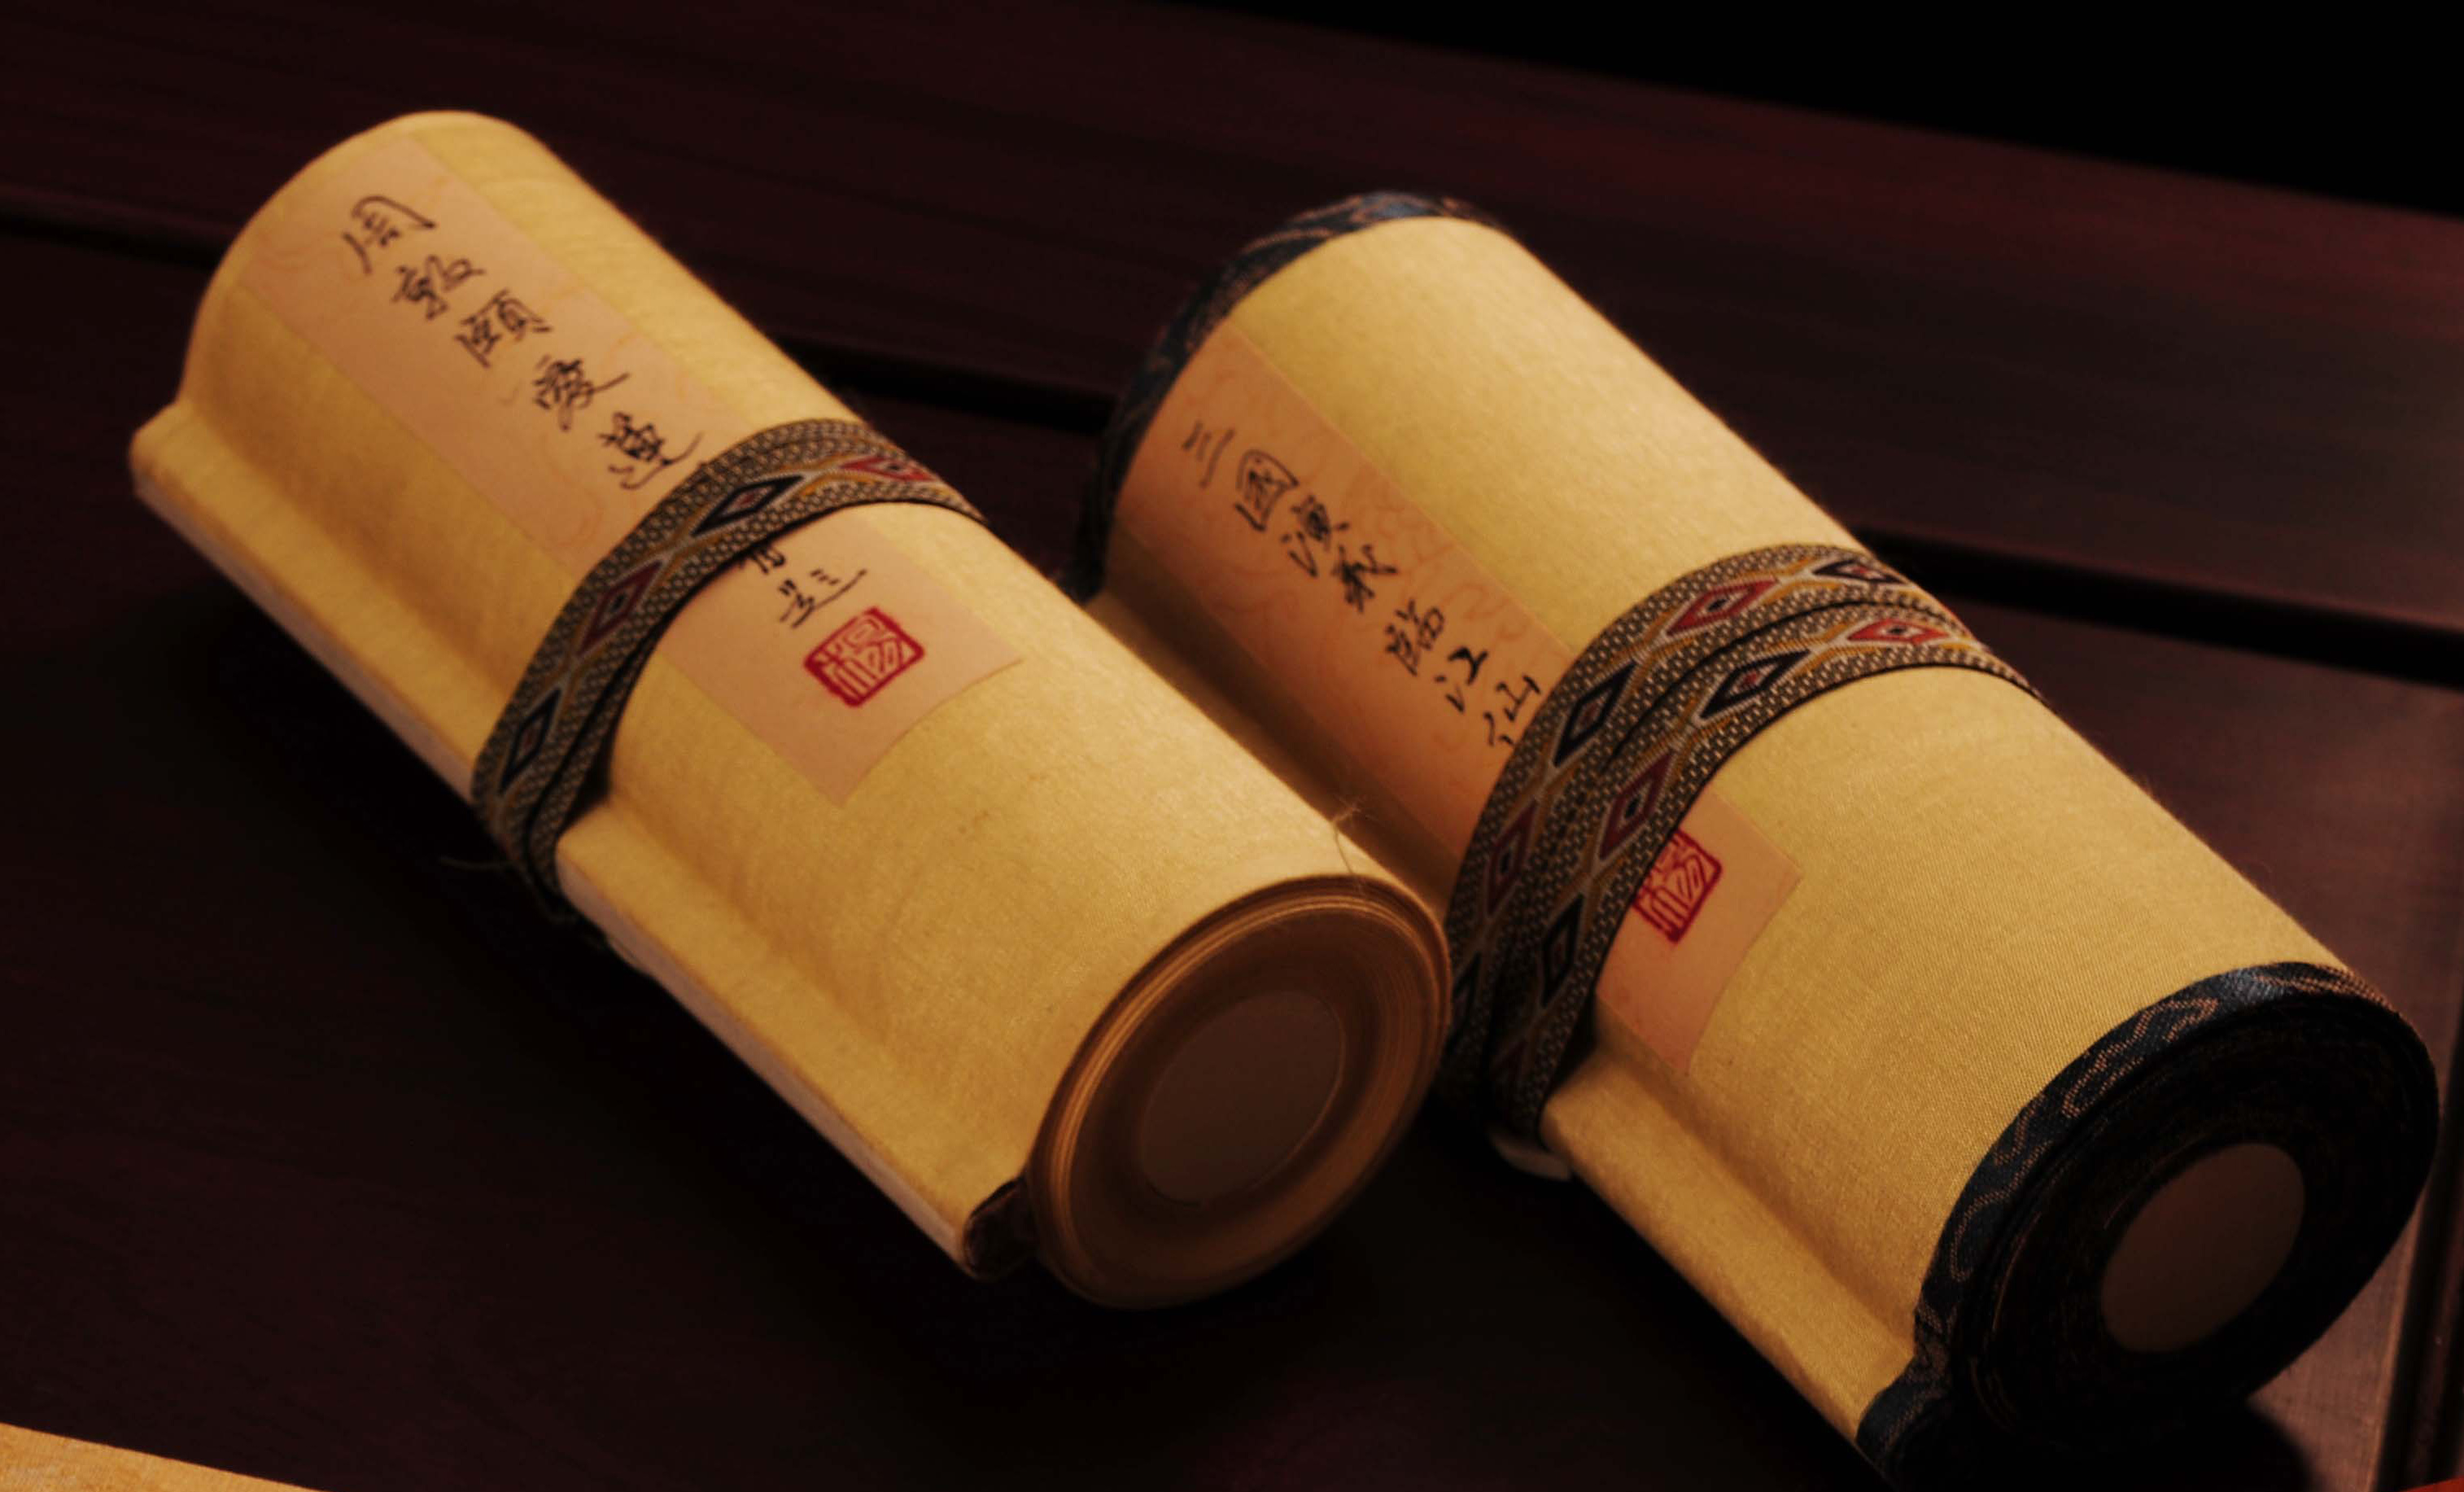 周敦頤愛蓮
題
楊
三國演義臨江仙
楊